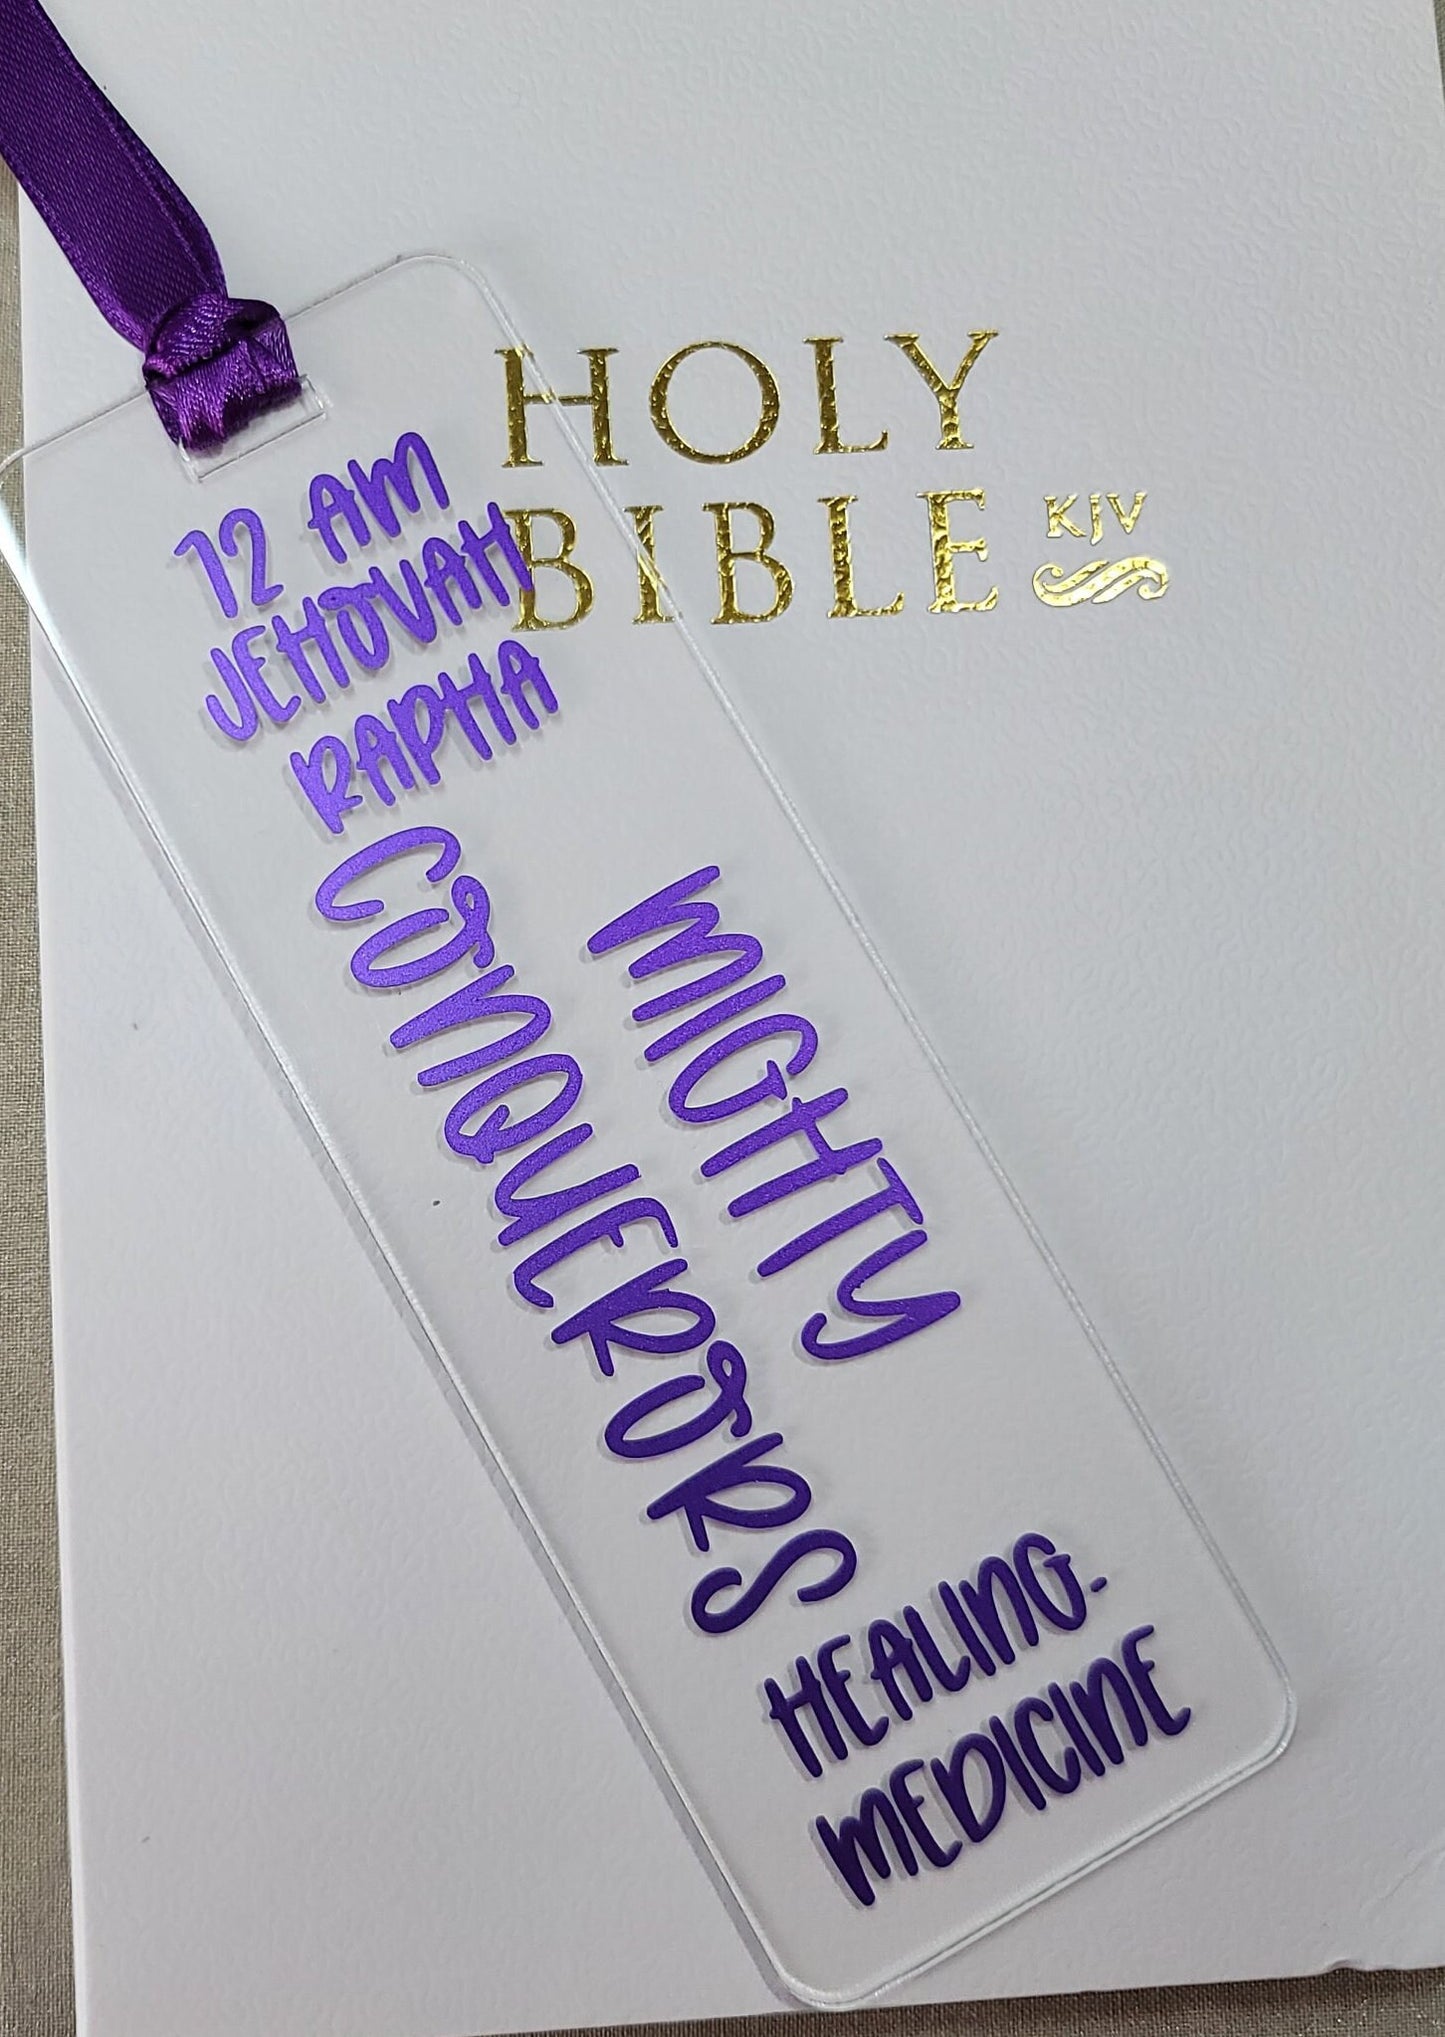 HOLY
BIBLE KJV
12 AM
JEHOVAH
RAPHA
MIGHTY
CONQUERORS
HEALING.
MEDICINE